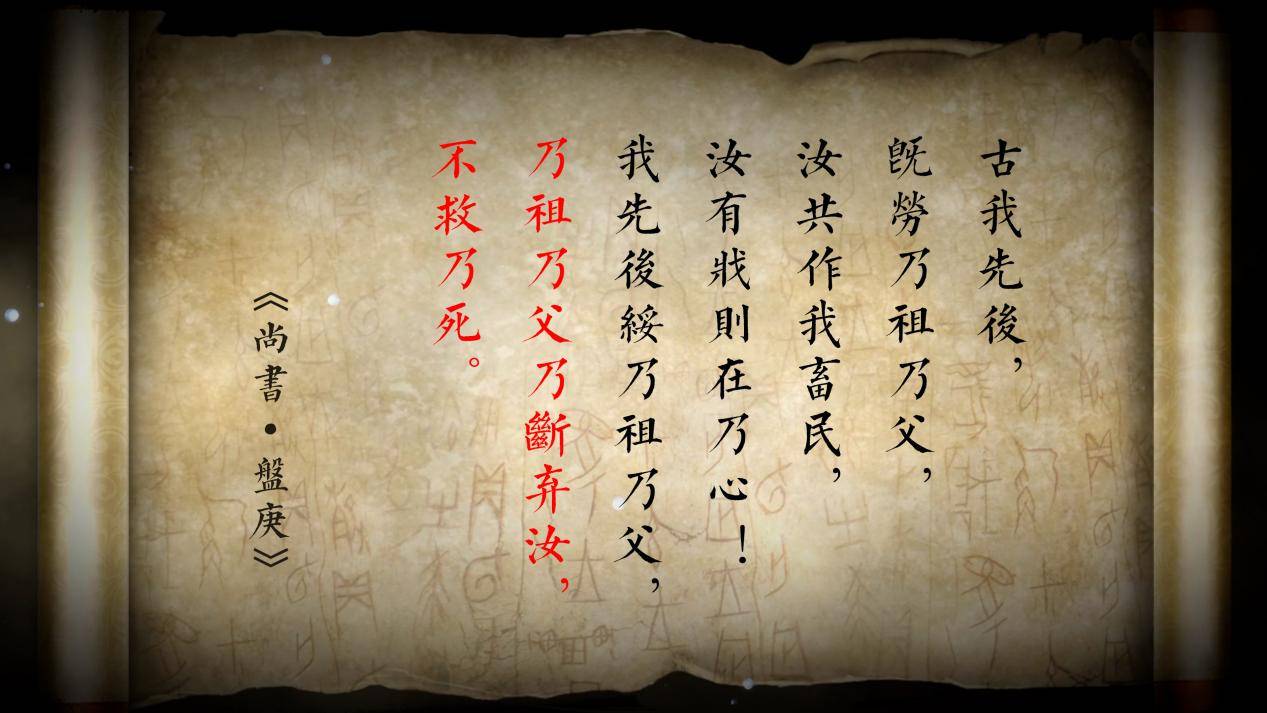 古我先後，
既勞乃祖乃父，
汝共作我畜民，
汝有戕則在乃心！
我先後綏乃祖乃父，
乃祖乃父乃斷弃汝，
不救乃死。
《尚書•盤庚》